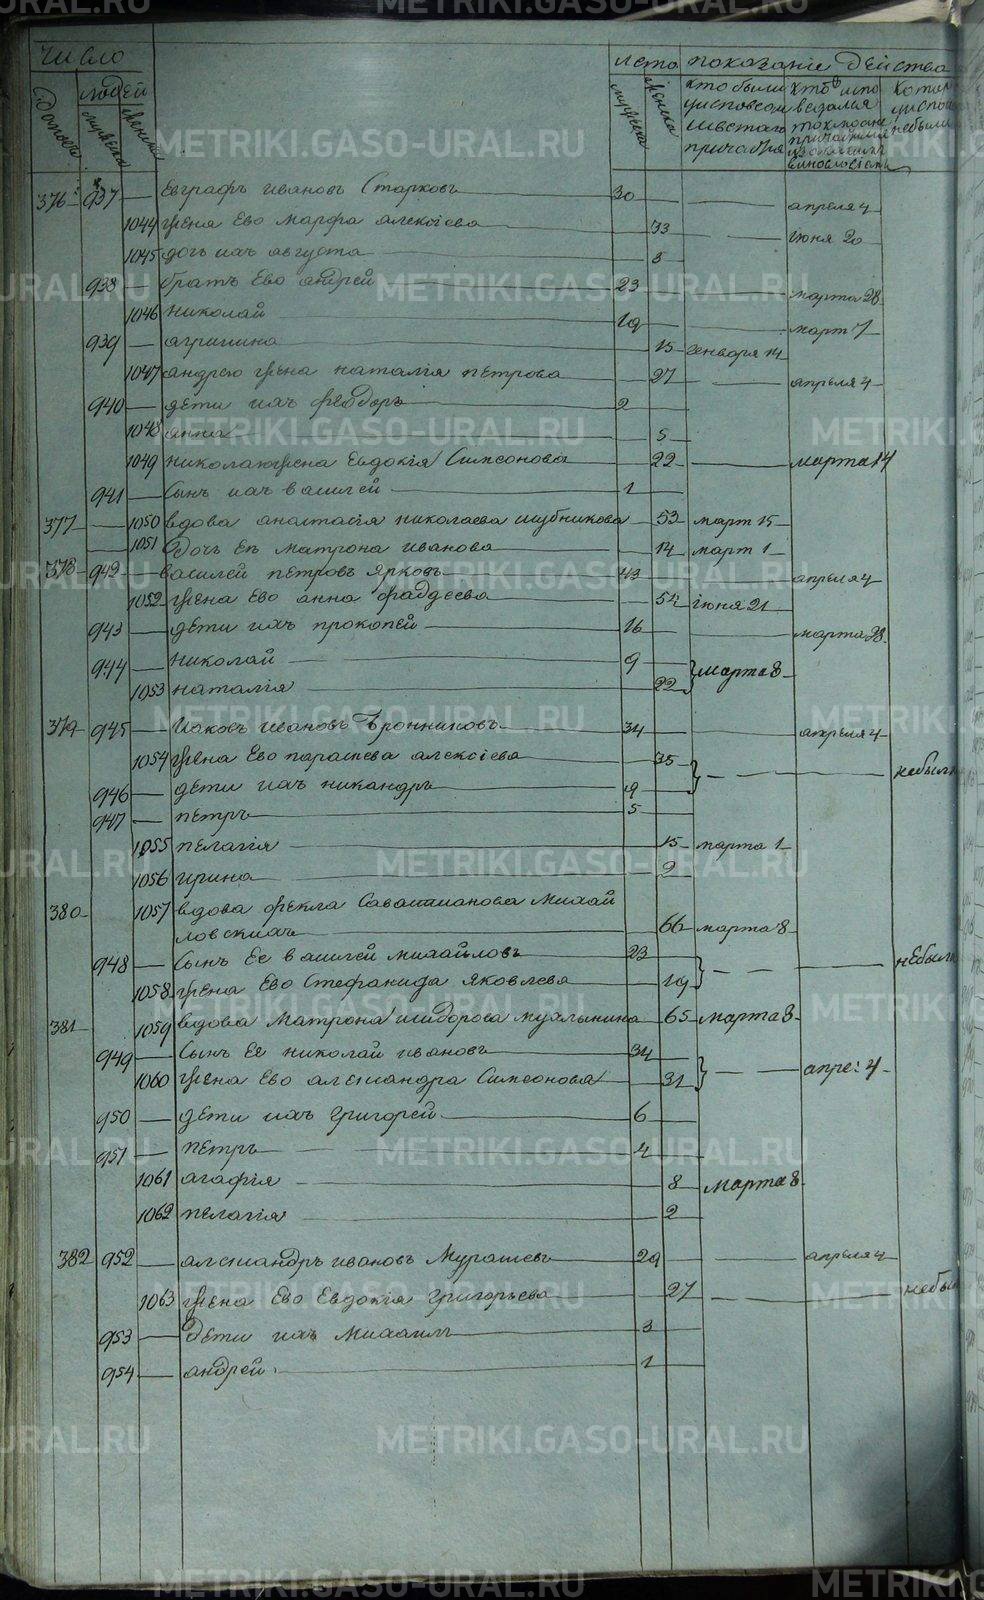 число
лета показанiе действа
домовъ
людей
мужеска
женска
мужеска
женска
кто были у исповеди и святаго причастiя
кто исповедался токмо а не причастился и за какимъ виновословiемъ
котор у испов не были
376 937 Евграфъ ивановъ Старковъ 30 апреля 4
1044 жена Ево марфа алексiева 33 iюня 20
1045 дочь ихъ августа 5
938 братъ Ево андрей 23 марта 28
1046 николай 19 март 7
939 агрипина 15 генваря 14
1047 андрею жена наталiя петрова 27 апреля 4
940 дети ихъ феодоръ 2
1048 анна 5
1049 николаю жена Евдокiя Симеонова 22 марта 14
941 Сынъ ихъ василей 1
377 1050 вдова анастасiя николаева шубникова 53 март 15
1051 Дочь Ея матрона иванова 14 март 1
378 942 василей петровъ Ярковъ 43 апреля 4
1052 жена Ево анна фаддеева 54 iюня 21
943 дети ихъ прокопей 16 марта 28
944 николай 9
1053 наталiя 22 марта 8
379 945 Иаковъ ивановъ Бронниковъ 34 апреля 4
1054 жена Ево парасъева алексiева 35 небыли
946 дети ихъ никандръ 9
947 петръ 5
1055 пелагiя 15 марта 1
1056 ирина 2
380 1057 вдова фекла Савастианова Михай
ловскихъ 66 марта 8
948 Сынъ Ее василей михайловъ 23 небыли
1058 жена Ево Стефанида Яковлева 19
381 1059 вдова Матрона исидорова мухлынина 65 марта 8
949 Сынъ Ее николай ивановъ 34
1060 жена Ево александра Симеонова 31 апре: 4
950 дети ихъ григорей 6
951 петръ 4
1061 агафiя 8 марта 8
1062 пелагiя 2
382 952 александръ ивановъ Мурашевъ 29 апреля 4
1063 жена Ево Евдокiя григорьева 27 небы
953 Дети ихъ Михаилъ 3
954 андрей 1
METRIKI.GASO-URAL.RU